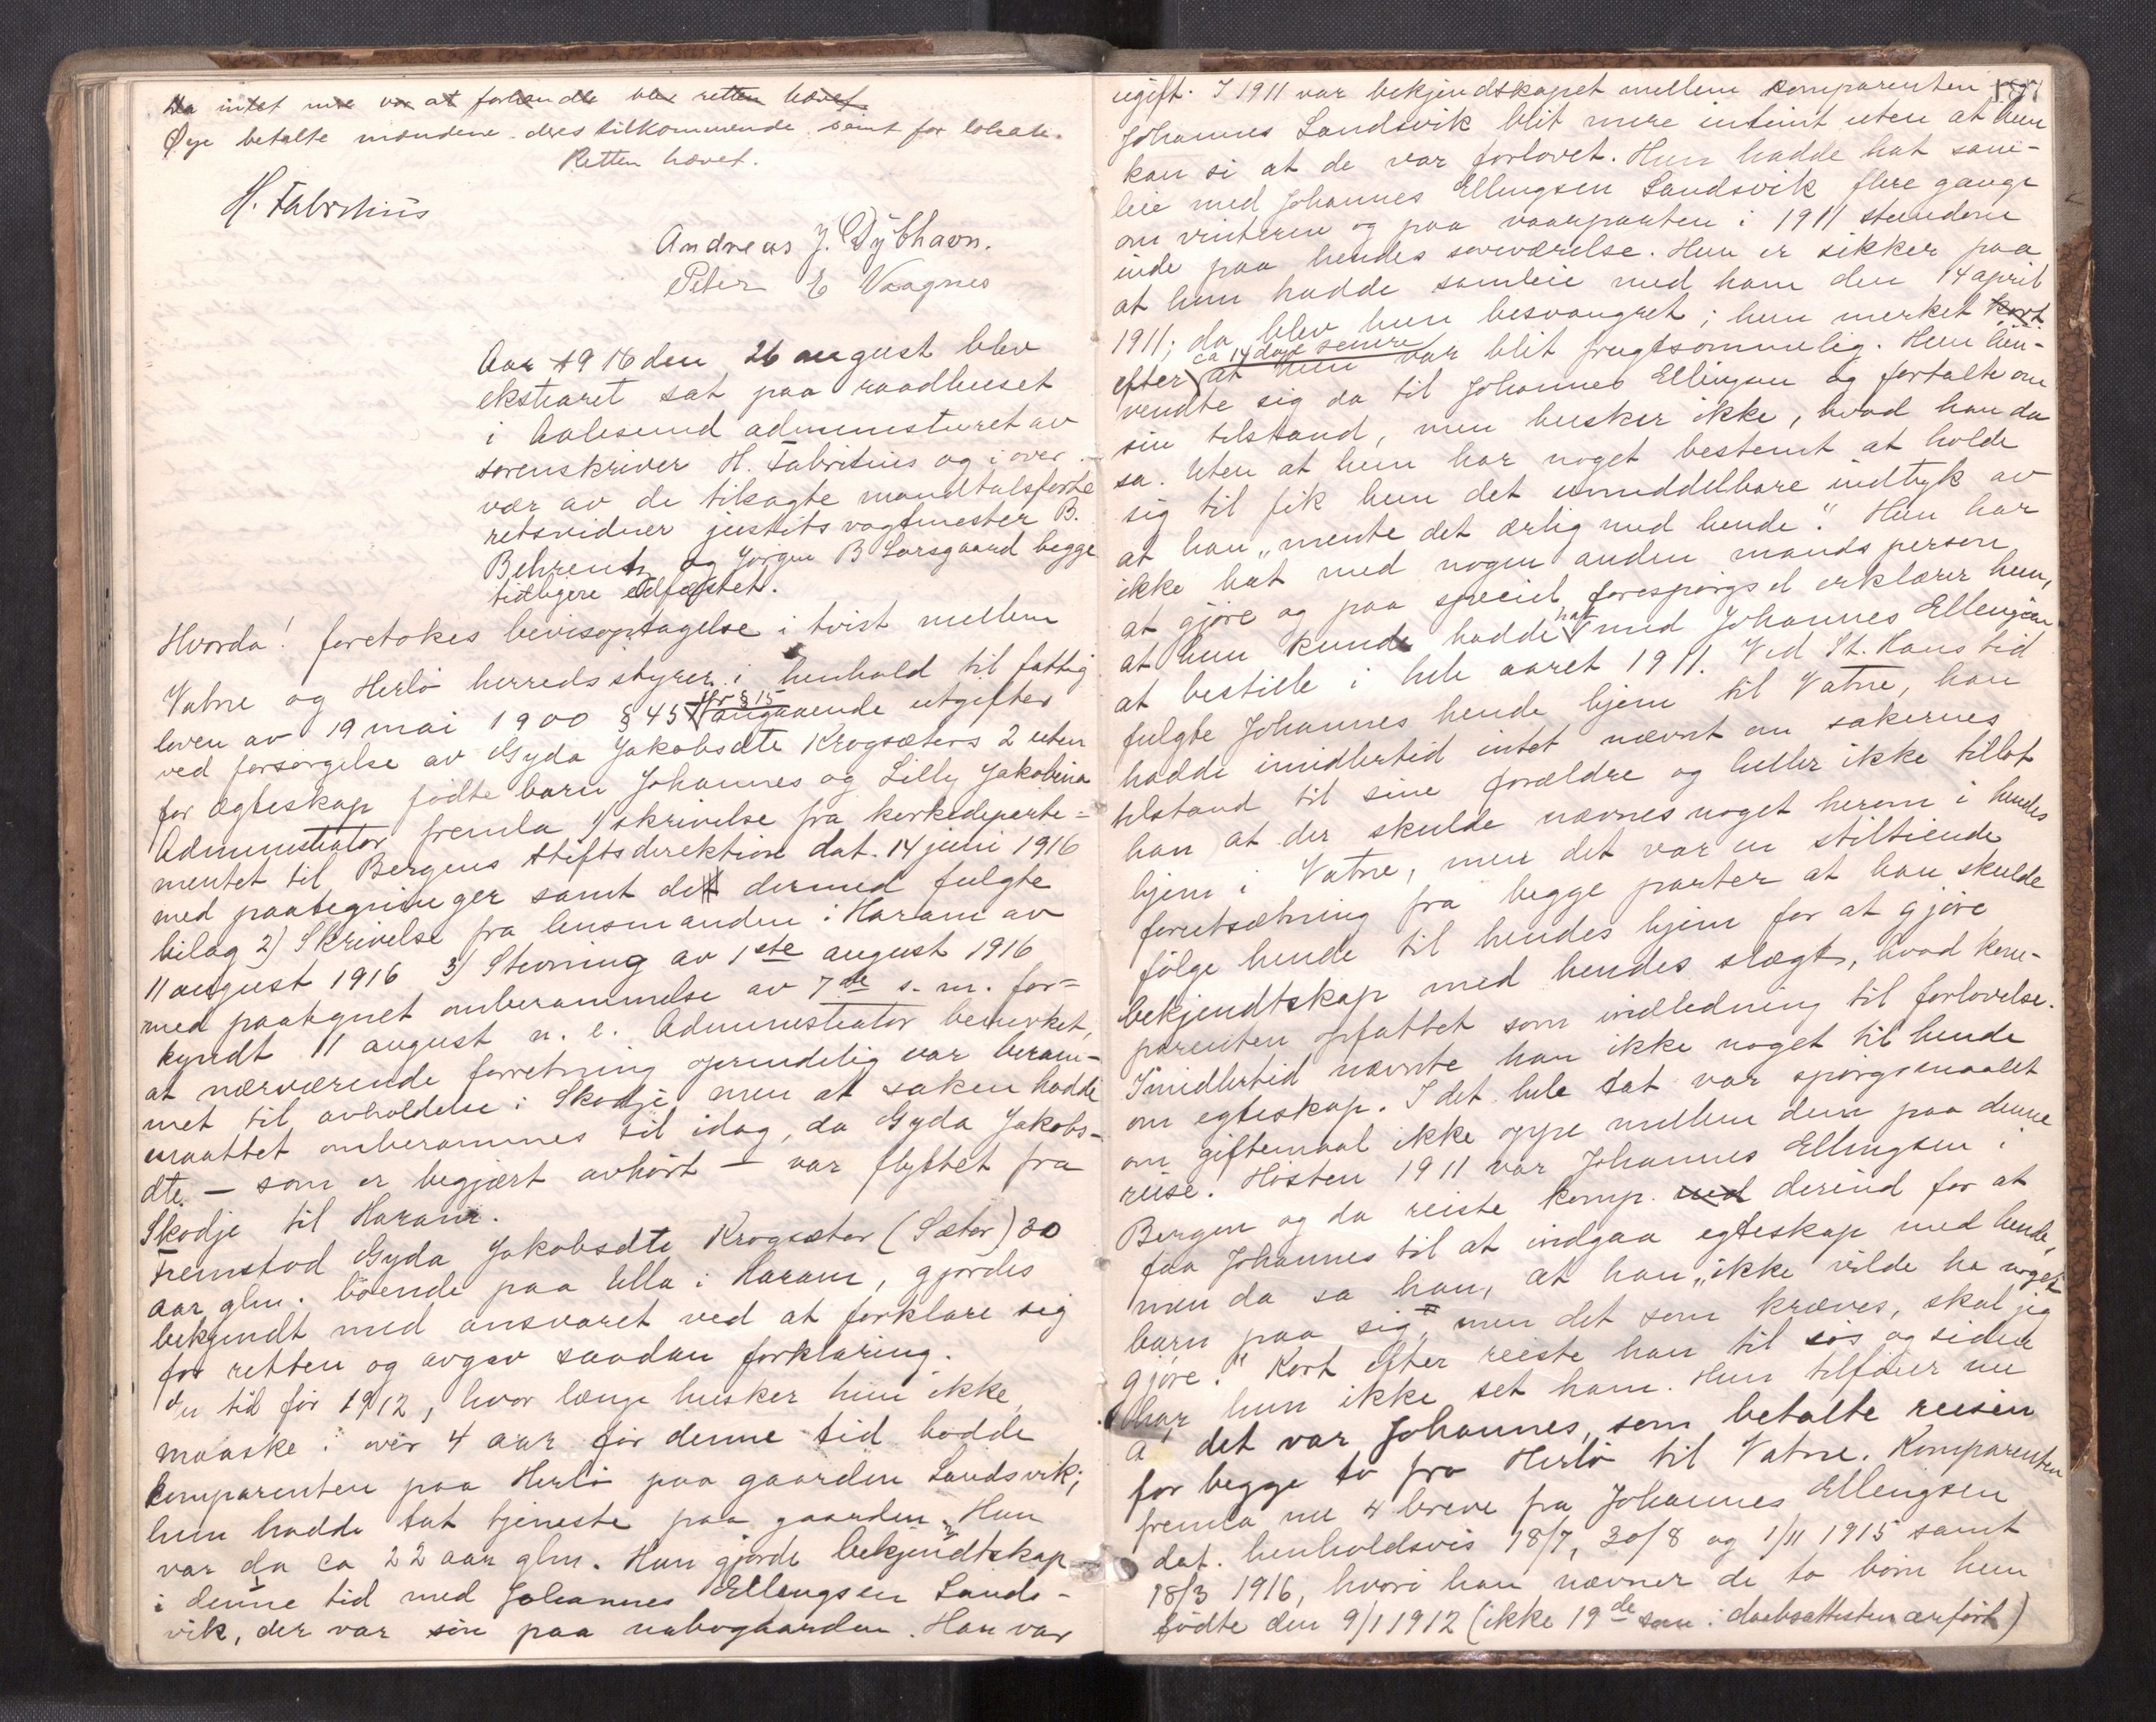 Da intet mere var at forhandle blev retten hævet
Øye betalte mændene deres tilkommende samt for lokale.
Retten hævet.
H. Fabritius
Andreas J. Dybhavn.
Peter E Vaagnes
Aar 1916 den 26 august blev
ekstraret sat paa raadhuset
i Aalesund administreret av
sorenskriver H. Fabritius og i over-
vær av de tilsagte mandtalsførte
retsvidner justitsvagtmester B.
Behrentz og Jørgen B Larsgaard begge
tidligere edfæstet.
Hvorda! foretokes bevisoptagelse i tvist mellem
Vatne og Herlö herredsstyrer i henhold til fattig
loven av 19 mai 1900 § 45 jfr § 15 angaaende utgifter
ved forsørgelse av Gyda Jakobsdtr Krogsæters 2 uten
for ægteskap fødte barn Johannes og Lilly Jakobina
Administrator fremla 1) skrivelse fra kirkedeparte=
mentet til Bergens stiftsdirektion dat. 14 juni 1916
med paategninger samt de dermed fulgte
bilag 2) Skrivelse fra lensmanden i Haram av
11 august 1916 3) Stevning av 1ste august 1916
med paategnet omberammelse av 7de s. m. for=
kyndt 11 august n. e. Administrator bemerket,
at nærværende forretning oprindelig var beram-
met til avholdelse i Skodje men at saken hadde
maattet omberammes til idag, da Gyda Jakobs-
dtr. – som er begjært avhørt – var flyttet fra
Skodje til Haram.
Fremstod Gyda Jakobsdtr Krogsæter (Sæter) 30
aar glm. boende paa Ulla i Haram, gjordes
bekjendt med ansvaret ved at forklare sig
for retten og avgav saadan forklaring.
En tid før 1912, hvor længe husker hun ikke,
maaske i over 4 aar før denne tid bodde
komparenten paa Herlö paa gaarden Landsvik;
hun hadde tat tjeneste paa gaarden. Hun
var da ca 22 aar glm. Hun gjorde bekjendtskap
i denne tid med Johannes Ellingsen Lands-
vik, der var søn paa nabogaarden. Han var
ugift. I 1911 var bekjendskapet mellem komparenten og
Johannes Landsvik blit mere intimt uten at hun
kan si at de var forlovet. Hun hadde hat sam-
leie med Johannes Ellingsen Landsvik flere gange
om vinteren og paa vaarparten i 1911 stundom
inde paa hendes soveværelse. Hun er sikker paa
at hun hadde samleie med ham den 14 april
1911; da blev hun besvangret; hun merket kort
efter ca 14 dage senere at hun var blit frugtsommelig. Hun hen-
vendte sig da til Johannes Ellingsen og fortalte om
sin tilstand, men husker ikke, hvad han da
sa. Uten at hun har noget bestemt at holde
sig til fik hun det umiddelbare indtryk av
at han „mente det ærlig med hende". Hun har
ikke hat med nogen anden mandsperson
at gjøre og paa speciel forespørgsel erklærer hun,
at hun kunde hadde hat med Johannes Ellingsen
at bestille i hele aaret 1911. Ved St. Hans tid
fulgte Johannes hende hjem til Vatne, han
hadde imidlertid intet nævnt om sakernes
tilstand til sine forældre og heller ikke tillot
han at der skulde nævnes noget herom i hendes
hjem i Vatne, men det var en stiltiende
forutsætning fra begge parter at han skulde
følge hende til hendes hjem for at gjøre
bekjendtskap med hendes slægt, hvad kom-
parenten opfattet som indledning til forlovelse.
Imidlertid nævnte han ikke noget til hende
om egteskap. I det hele tat var spørgsmaalet
om giftemaal ikke oppe mellem dem paa denne
reise. Høsten 1911 var Johannes Ellingsen i
Bergen og da reiste komp. ned derind for at
faa Johannes til at indgaa egteskap med hende,
men da sa han, at han „ikke vilde ha noget
barn paa sig" „men det som kræves, skal jeg
gjøre." Kort efter reiste han til sjøs og siden
har hun ikke set ham. Hun tilføier nu
a' det var Johannes, som betalte reisen
for begge to fra Herlö til Vatne. Komparenten
fremla nu 4 breve fra Johannes Ellingsen
dat. henholdsvis 18/7, 30/8 og 1/11 1915 samt
18/3 1916, hvori han nævner de to børn hun
fødte den 9/1 1912 (ikke 19de som i daabsattesten anført)